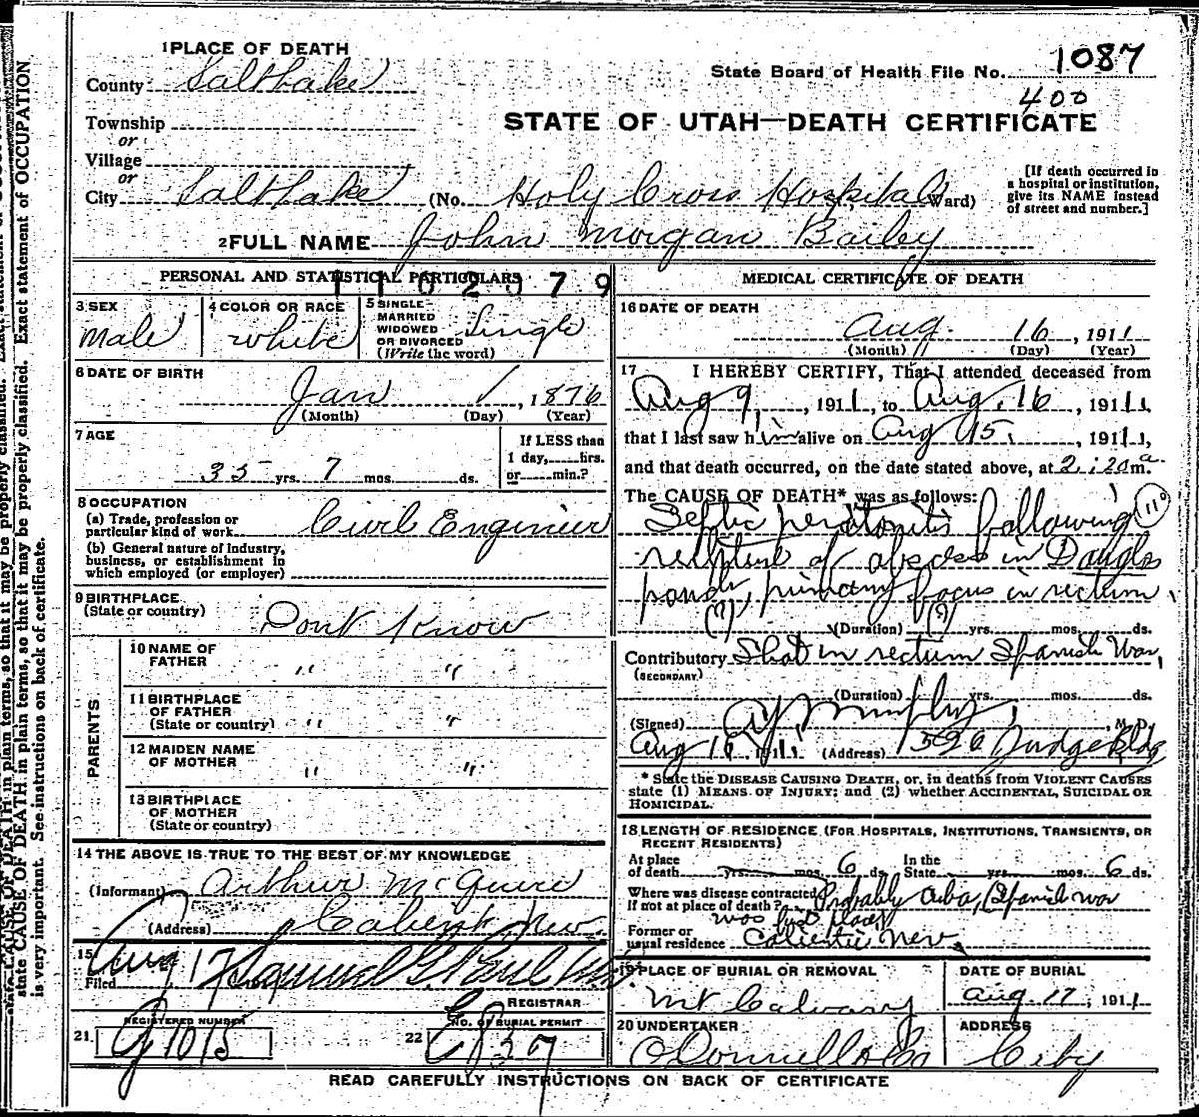 1 PLACE OF DEATH
County Salt Lake
State Board of Health File No. 1087
400
Township
or
Village
or
STATE OF UTAH—DEATH CERTIFICATE
City Salt Lake (No. Holy Cross Hospital St., Ward)
[If death occurred in
a hospital or institution,
give its NAME instead
of street and number.]
2 FULL NAME John Morgan Bailey
PERSONAL AND STATISTICAL PARTICULARS
1102079
3 SEX
Male
4 COLOR OR RACE
White
5 SINGLE
MARRIED
WIDOWED
OR DIVORCED
(Write the word)
Single
6 DATE OF BIRTH
Jan 1, 1876
(Month) (Day) (Year)
7 AGE
35 yrs. 7 mos. ds.
If LESS than
1 day, hrs.
or min.?
8 OCCUPATION
(a) Trade, profession or
particular kind of work Civil Engineer
(b) General nature of Industry,
business, or establishment in
which employed (or employer)
9 BIRTHPLACE
(State or country)
Dont Know
PARENTS
10 NAME OF
FATHER " "
11 BIRTHPLACE
OF FATHER
(State or country) " "
12 MAIDEN NAME
OF MOTHER " "
13 BIRTHPLACE
OF MOTHER
(State or country)
14 THE ABOVE IS TRUE TO THE BEST OF MY KNOWLEDGE
(Informant) Arthur McGuire
(Address) Calient Nev.
15
Filed Aug 17 Samuel G. Paul
REGISTRAR
21. REGISTERED NUMBER
1015
22 NO. OF BURIAL PERMIT
E837
MEDICAL CERTIFICATE OF DEATH
16 DATE OF DEATH
Aug. 16, 1911
(Month) (Day) (Year)
17 I HEREBY CERTIFY, That I attended deceased from
Aug 9, 1911, to Aug. 16, 1911,
that I last saw him alive on Aug 15, 1911,
and that death occurred, on the date stated above, at 2:20 a m.
The CAUSE OF DEATH* was as follows:
Septic peritonitis following
of abscess in Douglas
pouch, primary focus in rectum,
(?) (Duration) (?) yrs. mos. ds.
Contributory Shot in rectum Spanish War,
(SECONDARY)
(Duration) yrs. mos. ds.
(Signed) Murphy, M. D.
Aug 16 1911. (Address) 526 Judge Bldg
* State the DISEASE CAUSING DEATH, or, in deaths from VIOLENT CAUSES
state (1) MEANS OF INJURY; and (2) whether ACCIDENTAL, SUICIDAL OR
HOMICIDAL.
18 LENGTH OF RESIDENCE (FOR HOSPITALS, INSTITUTIONS, TRANSIENTS, OR
RECENT RESIDENTS)
At place
of death yrs. mos. 6 ds.
In the
State yrs. mos. 6 ds.
Where was disease contracted
If not at place of death? Probably Cuba, (Spanish war
was first place)
Former or
usual residence Calientie Nev
19 PLACE OF BURIAL OR REMOVAL
Mt Calvary
DATE OF BURIAL
Aug. 17, 1911
20 UNDERTAKER
O'Donnell & Co
ADDRESS
City
READ CAREFULLY INSTRUCTIONS ON BACK OF CERTIFICATE
state CAUSE OF DEATH in plain terms, so that it may be properly classified. Exact statement of OCCUPATION
is very important. See instructions on back of certificate.